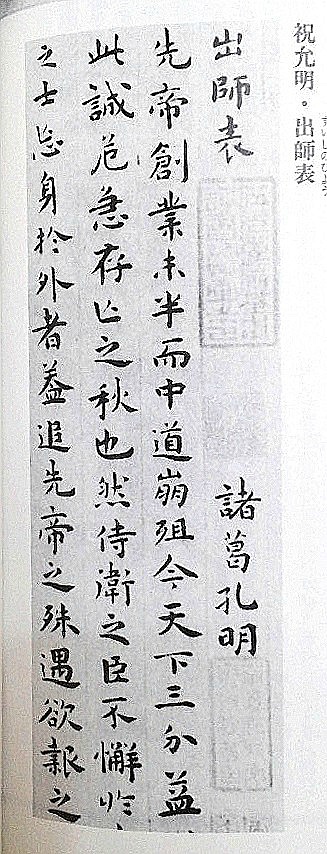 祝允明・出師表
出師表
諸葛孔明
先帝創業未半而中道崩殂今天下三分益
此誠危急存亡之秋也然侍衛之臣不懈於
之士忘身於外者蓋追先帝之殊遇欲報之